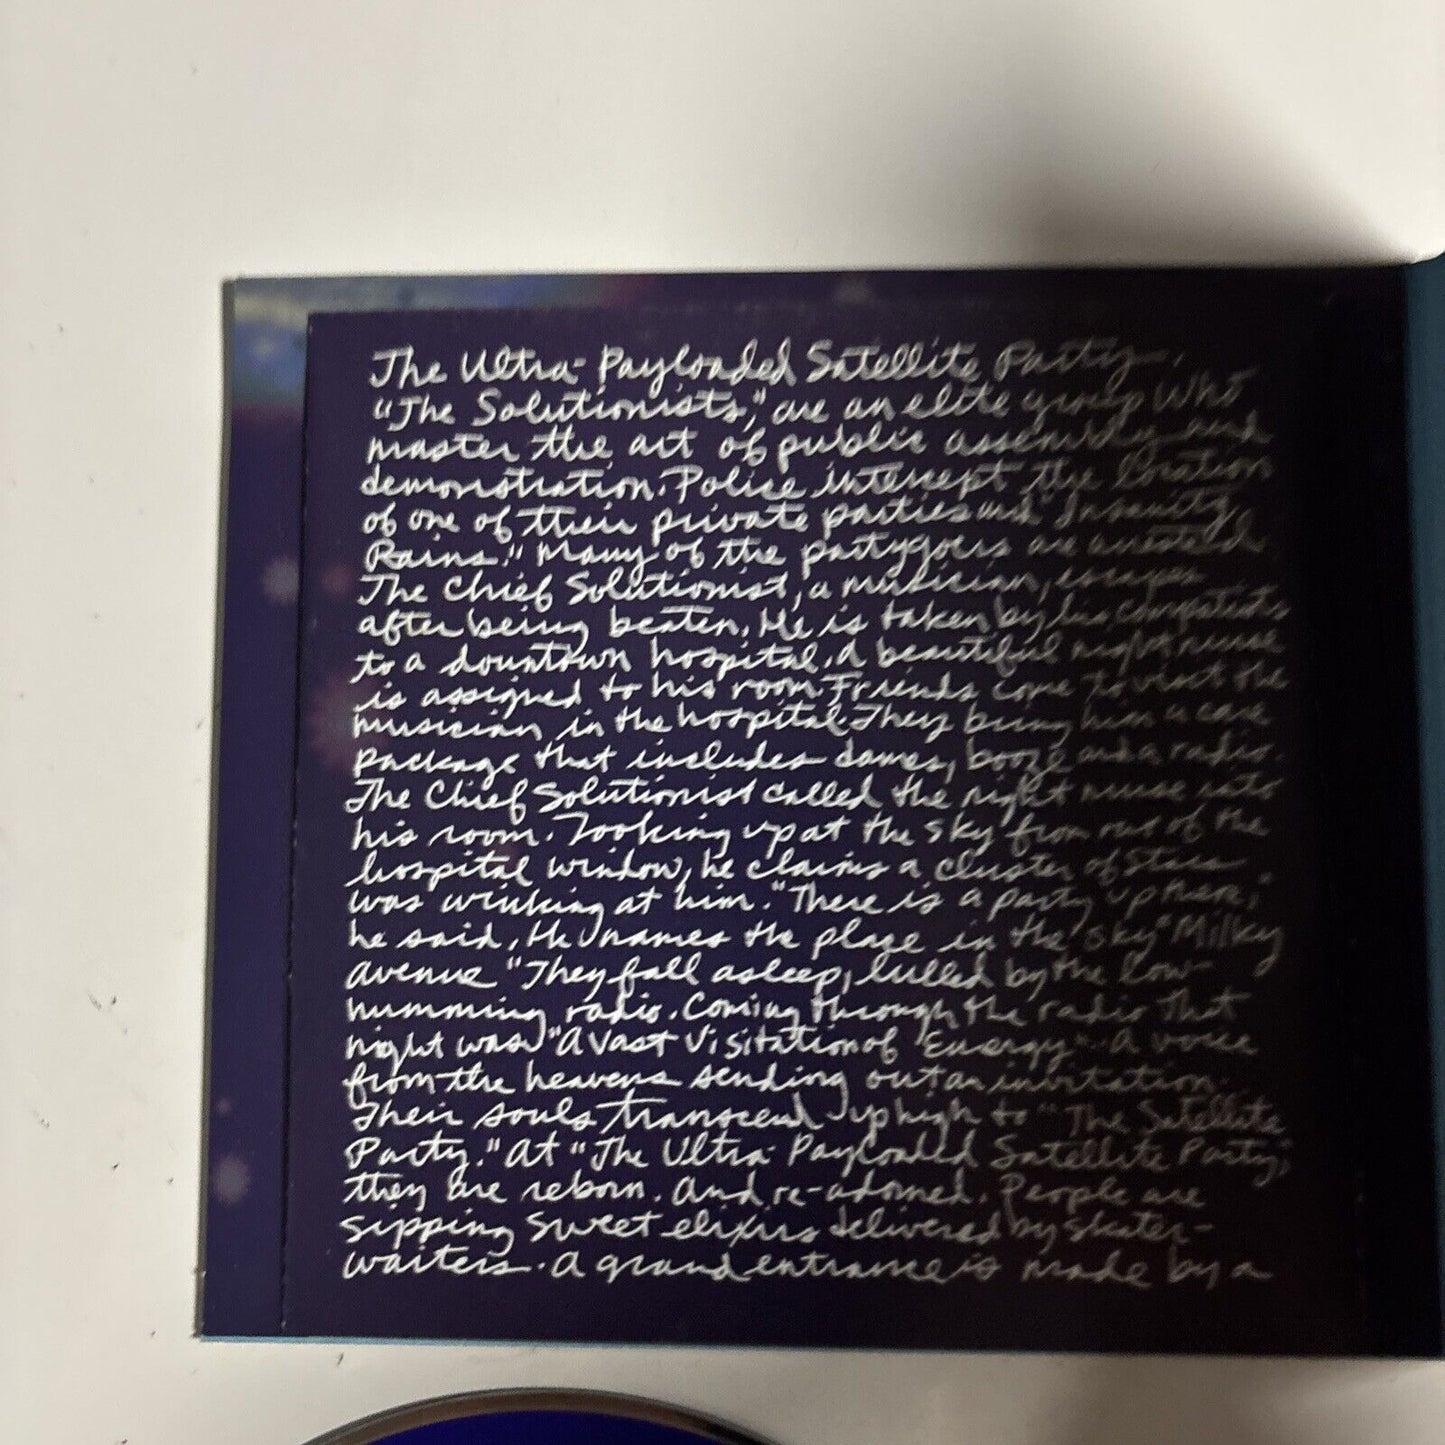 The Ultra-Payloaded Satellite Party.
"The Solutionists," are an elite group who
master the art of public assembly and
demonstration. Police intercept the location
of one of their private parties and "Insanity
Rains." Many of the partygoers are arrested
The Chief Solutionist, a musician, escapes
after being beaten. He is taken by his compatriots
to a downtown hospital. A beautiful night nurse
is assigned to his room. Friends come to visit the
musician in the hospital. They bring him a care
package that includes dames, booze and a radio.
The Chief Solutionist called the night nurse into
his room. Looking up at the sky from out of the
hospital window, he claims a cluster of Stars
was winking at him. "There is a party up there,"
he said, He names the place in the sky "Milky
Avenue "They fall asleep, lulled by the low-
humming radio. Coming through the radio that
night was "A Vast Visitation of Energy". A voice
from the heavens sending out an invitation.
Their souls transcend up high to "The Satellite
Party." At "The Ultra-Payloaded Satellite Party,"
they are reborn. And re-adorned. People are
sipping sweet elixirs delivered by skater-
waiters. A grand entrance is made by a